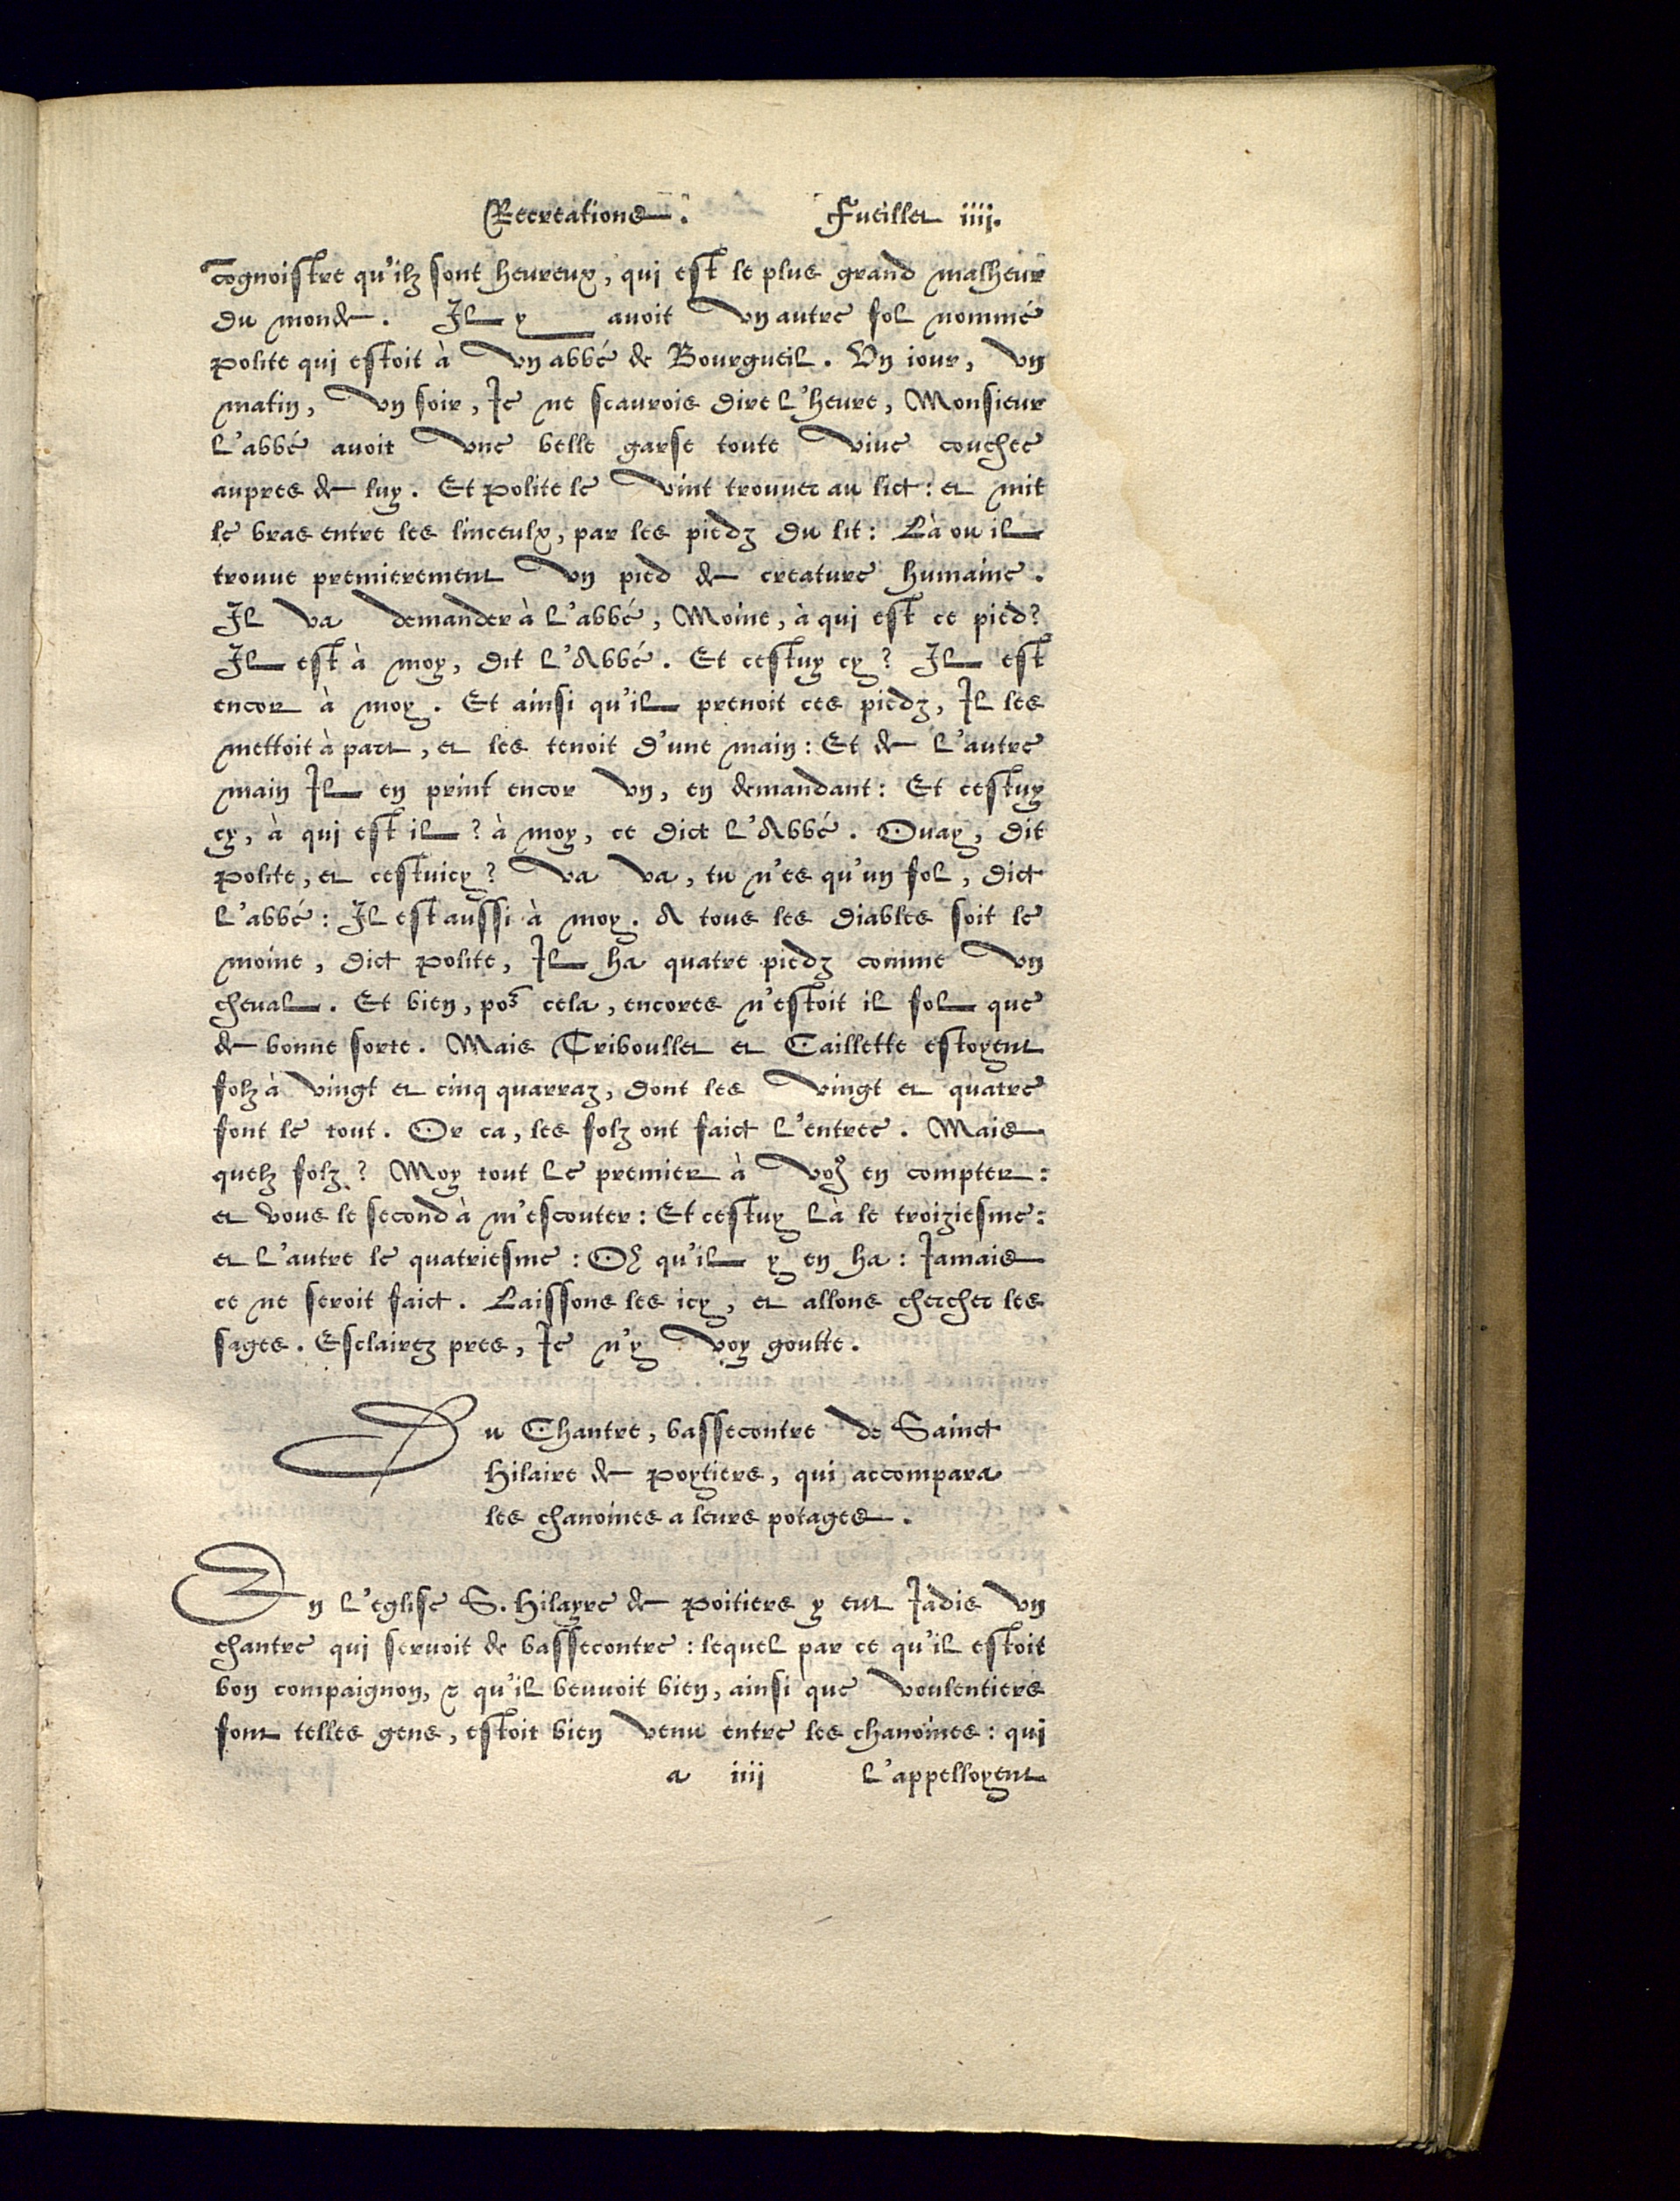 Recreations. Fueillet iiij.
cognoistre qu'ilz sont heureux, qui est le plus grand malheur
du monde. Il y avoit vn autre fol nommé
polite qui estoit à vn abbé de Bourgueil. Vn iour, vn
matin, vn soir, Ie ne scaurois dire l'heure, Monsieur
l'abbé auoit vne belle garse toute viue couchee
aupres de luy. Et polite le vint trouuer au lict: et mit
le bras entre les linceulx, par les piedz du lit: Là ou il
trouue premierement vn pied de creature humaine.
Il va demander à l'abbé, Moine, à qui est ce pied?
Il est à moy, dit l'Abbé. Et cestuy cy? Il est
encor à moy. Et ainsi qu'il prenoit ces piedz, Il les
mettoit à part, et les tenoit d'une main: Et de l'autre
main Il en print encor vn, en demandant: Et cestuy
cy, à qui est il? à moy, ce dict l'Abbé. Ouay, dit
polite, et cestuicy? va va, tu n'es qu'un fol, dict
l'abbé: Il est aussi à moy. A tous les diables soit le
moine, dict polite, Il ha quatre piedz comme vn
cheual. Et bien, poꝰ cela, encores n'estoit il fol que
de bonne sorte. Mais Triboullet et Caillette estoyent
folz à vingt et cinq quarraz, dont les vingt et quatre
font le tout. Or ca, les folz ont faict l'entree. Mais
quelz folz? Moy tout le premier à voꝰ en compter:
et vous le second à m'escouter: Et cestuy là le troiziesme:
et l'autre le quatriesme: Oh qu'il y en ha: Iamais
ce ne seroit faict. Laissons les icy, et allons chercher les
sages. Esclairez pres, Ie n'y voy goutte.
Du Chantre, bassecontre de Sainct
Hilaire de poytiers, qui accompara
les chanoines a leurs potages.
En l'eglise S. Hilayre de poitiers y eut Iadis vn
chantre qui seruoit de bassecontre: lequel par ce qu'il estoit
bon compaignon, & qu'il beuuoit bien, ainsi que voulentiers
font telles gens, estoit bien venu entre les chanoines: qui
a iiij l'appelloyent